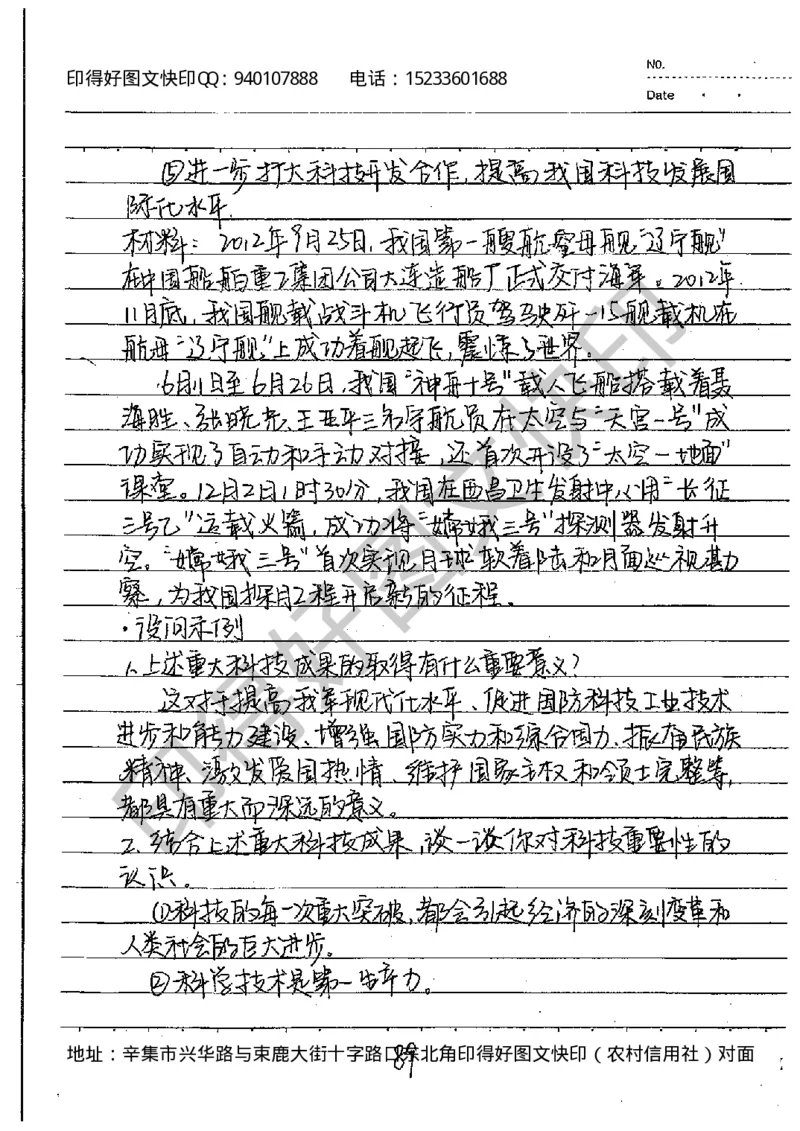 印得好图文快印QQ：940107888 电话：15233601688
No.
Date
⑤进一步扩大科技研发合作，提高我国科技发展国
际化水平.
材料：2012年9月25日，我国第一艘航空母舰“辽宁舰”
在中国船舶重工集团公司大连造船厂正式交付海军。2012年
11月底，我国舰载战斗机飞行员驾驶歼-15舰载机在
航母“辽宁舰”上成功着舰起飞，震惊了世界。
6月11日至6月26日，我国“神舟十号”载人飞船搭载着聂
海胜、张晓光、王亚平三名宇航员在太空与“天宫一号”成
功实现了自动和手动对接，还首次开设了“太空－地面”
课堂。12月2日1时30分，我国在西昌卫生发射中心用“长征
三号乙”运载火箭，成功将“嫦娥三号”探测器发射升
空。“嫦娥三号”首次实现月球软着陆和月面巡视勘
察，为我国探月工程开启新的征程。
·设问示例
1.上述重大科技成果的取得有什么重要意义？
这对于提高我军现代化水平、促进国防科技工业技术
进步和能力建设、增强国防实力和综合国力、振奋民族
精神、激发爱国热情、维护国家主权和领土完整等，
都具有重大而深远的意义。
2.结合上述重大科技成果，谈一谈你对科技重要性的
认识。
①科技的每一次重大突破，都会引起经济的深刻变革和
人类社会的巨大进步。
②科学技术是第一生产力。
地址：辛集市兴华路与束鹿大街十字路口东北角印得好图文快印（农村信用社）对面
89
印得好图文快印